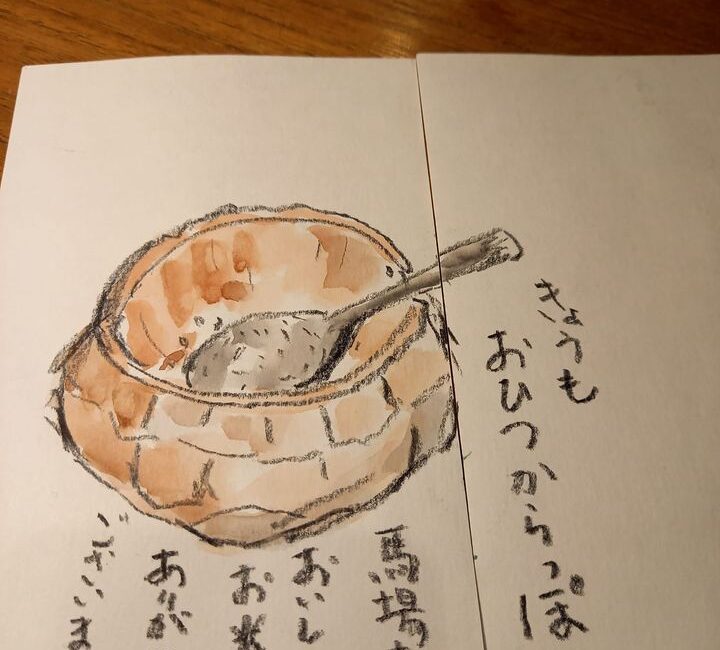 きょうも
おひつからっぽ
馬場
おいし
お米
ありが
ございま